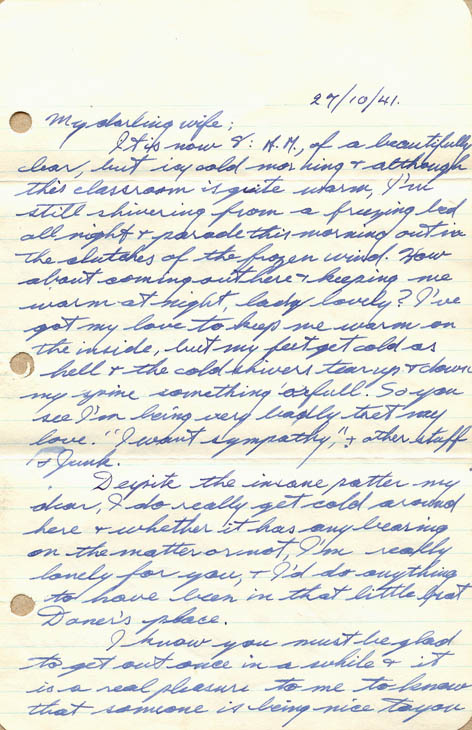 27/10/41.
My darling wife;
It is now 8: A.M., of a beautifully
clear, but icy cold morning & although
this classroom is quite warm, I'm
still shivering from a freezing bed
all night & parade this morning out in
the clutches of the frozen wind. How
about coming out here & keeping me
warm at night, lady lovely? I've
got my love to keep me warm on
the inside, but my feet get cold as
hell & the cold shivers tear up & down
my spine something 'orfull. So you
see I'm being very badly tret my
love. "I want sympathy," & other stuff
& Junk.
Despite the insane patter my
dear, I do really get cold around
here & whether it has any bearing
on the matter or not, I'm really
lonely for you, & I'd do anything
to have been in that little at
place.
I know you must be glad
to get out once in a while & it
is a real pleasure to me to know
that someone is being nice to you